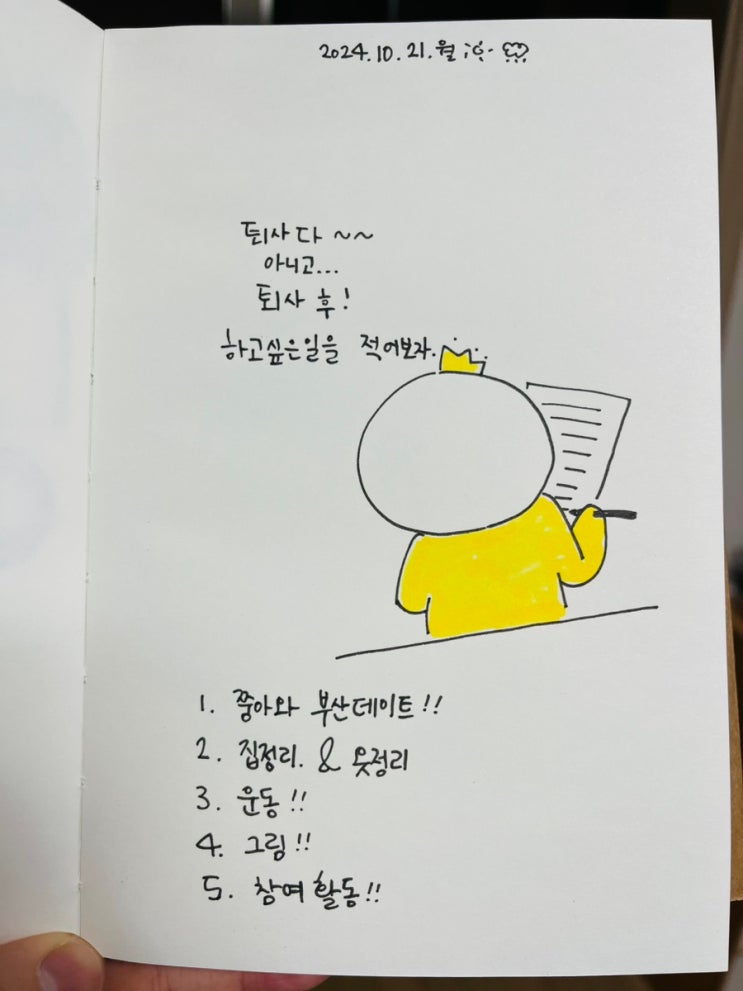 2024.10.21.월
퇴사다 ~~
아니고...
퇴사 후!
하고싶은일을 적어보자.
1. 쭝아와 부산데이트!!
2. 집정리. & 옷정리
3. 운동!!
4. 그림!!
5. 참여활동!!